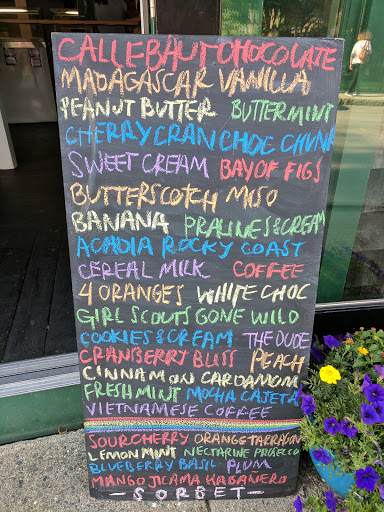 CALLEBAUT CHOCOLATE
MADAGASCAR VANILLA
PEANUT BUTTER BUTTERMINT
CHERRY CRAN CHOC CHUNK
SWEET CREAM BAY OF FIGS
BUTTERSCOTCH MISO
BANANA PRALINES & CREAM
ACADIA ROCKY COAST
CEREAL MILK COFFEE
4 ORANGES WHITE CHOC
GIRL SCOUTS GONE WILD
COOKIES & CREAM THE DUDE
CRANBERRY BLISS PEACH
CINNAMON CARDAMOM
FRESH MINT MOCHA CAJETA
VIETNAMESE COFFEE
SOUR CHERRY ORANGE TARRAGON
LEMON MINT NECTARINE PROSECCO
BLUEBERRY BASIL PLUM
MANGO JICAMA HABANERO
- SORBET -